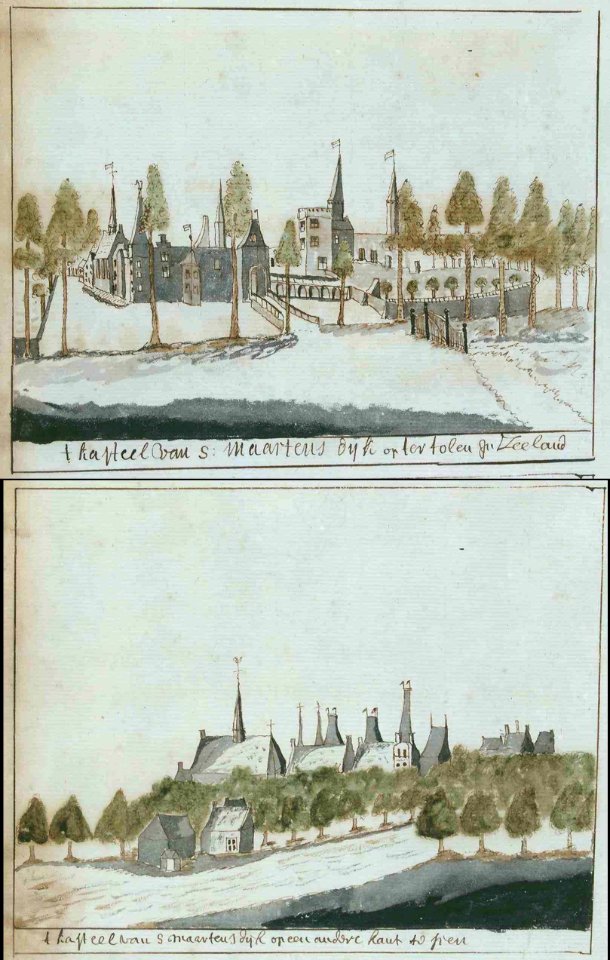 t kasteel van s: maartens dijk op ter tolen In Zeeland
t kasteel van s maartens dijk op een andere kant te sien